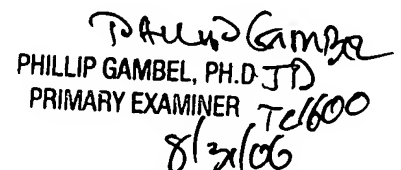 Phillip Gambel
PHILLIP GAMBEL, PH.D JD
PRIMARY EXAMINER TC1600
8/31/06